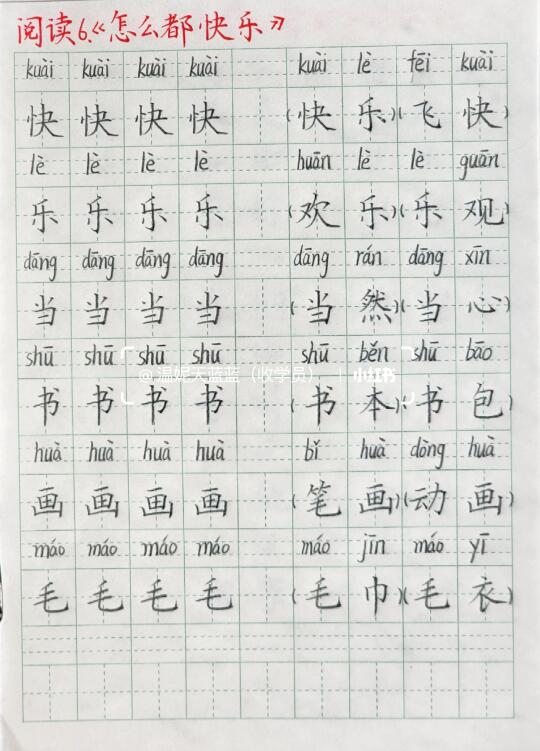 阅读6.《怎么都快乐》
kuài kuài kuài kuài kuài lè fēi kuài
快 快 快 快 (快 乐)(飞 快)
lè lè lè lè huān lè lè guān
乐 乐 乐 乐 (欢 乐)(乐 观)
dāng dāng dāng dāng dāng rán dāng xīn
当 当 当 当 (当 然)(当 心)
shū shū shū shū shū běn shū bāo
@温妮天蓝蓝(收学员) | 小红书
书 书 书 书 (书 本)(书 包)
huà huà huà huà bǐ huà dòng huà
画 画 画 画 (笔 画)(动 画)
máo máo máo máo máo jīn máo yī
毛 毛 毛 毛 (毛 巾)(毛 衣)